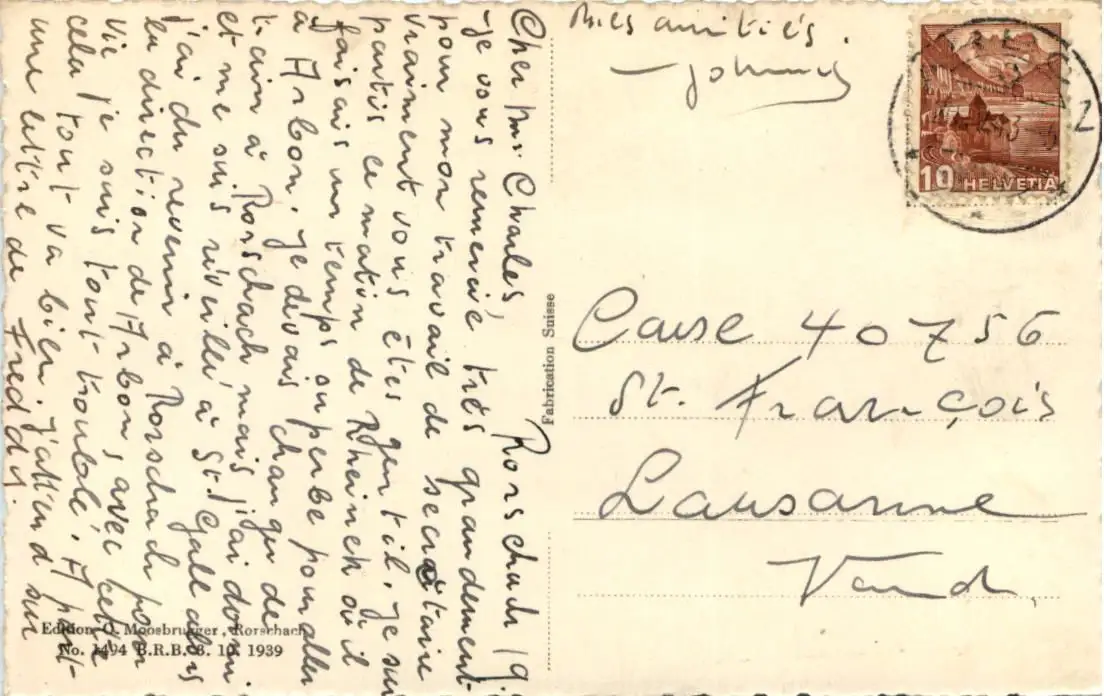 Rorschach 19.
Cher mr. Charles,
je vous remercie très grandement
pour mon travail de secrétaire
vraiment vous êtes gentil. Je suis
partis le matin de Rheineck où il
faisais un temps superbe pour aller
à Arbon. Je devais changer de
train à Rorschach mais j'ai dormi
et me suis réveillé à St. Gall alors
j'ai du revenir à Rorschach pour
la direction de Arbon, avec cette
vie je suis tout troublé. A part
cela tout va bien j'attend sur
une lettre de Freddy.
Mes amitiés.
Johnny
10 HELVETIA
Z
Fabrication Suisse
Case 40756
St. François
Lausanne
Vaud.
Edition O. Moosbrugger, Rorschach
No. 1494 B.R.B. 3. 10. 1939